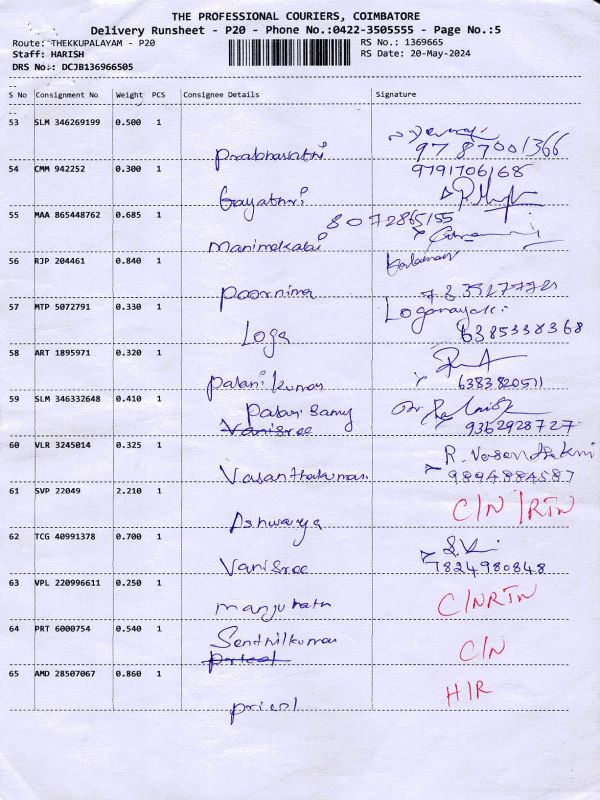 THE PROFESSIONAL COURIERS, COIMBATORE
Delivery Runsheet - P20 - Phone No.:0422-3505555 - Page No.:5
Route: THEKKUPALAYAM - P20 RS No.: 1369665
Staff: HARISH RS Date: 20-May-2024
DRS No.: DCJB136966505
S No Consignment No Weight PCS Consignee Details Signature
53 SLM 346269199 0.500 1
Prabhavathi 9787001366
54 CMM 942252 0.300 1 9791706168
Gayathri
55 MAA 865448762 0.685 1 8072865155
Manimekalai
56 RJP 204461 0.840 1
Poornima
57 MTP 5072791 0.330 1 Loganayaki
Loga 6385338368
58 ART 1895971 0.320 1
Palani kumar 6383820511
59 SLM 346332648 0.410 1 Palani Samy
Vanisree 9362928727
60 VLR 3245014 0.325 1 R. Vasandhakni
Vasanthakumari 9894884587
61 SVP 22049 2.210 1 C/N/RTN
Ashwarya
62 TCG 40991378 0.700 1
Vanisree 7824980848
63 VPL 220996611 0.250 1 C/NRTN
manjunath
64 PRT 6000754 0.540 1 Senthilkumar
pricol C/N
65 AMD 28507067 0.860 1 H/R
pricol